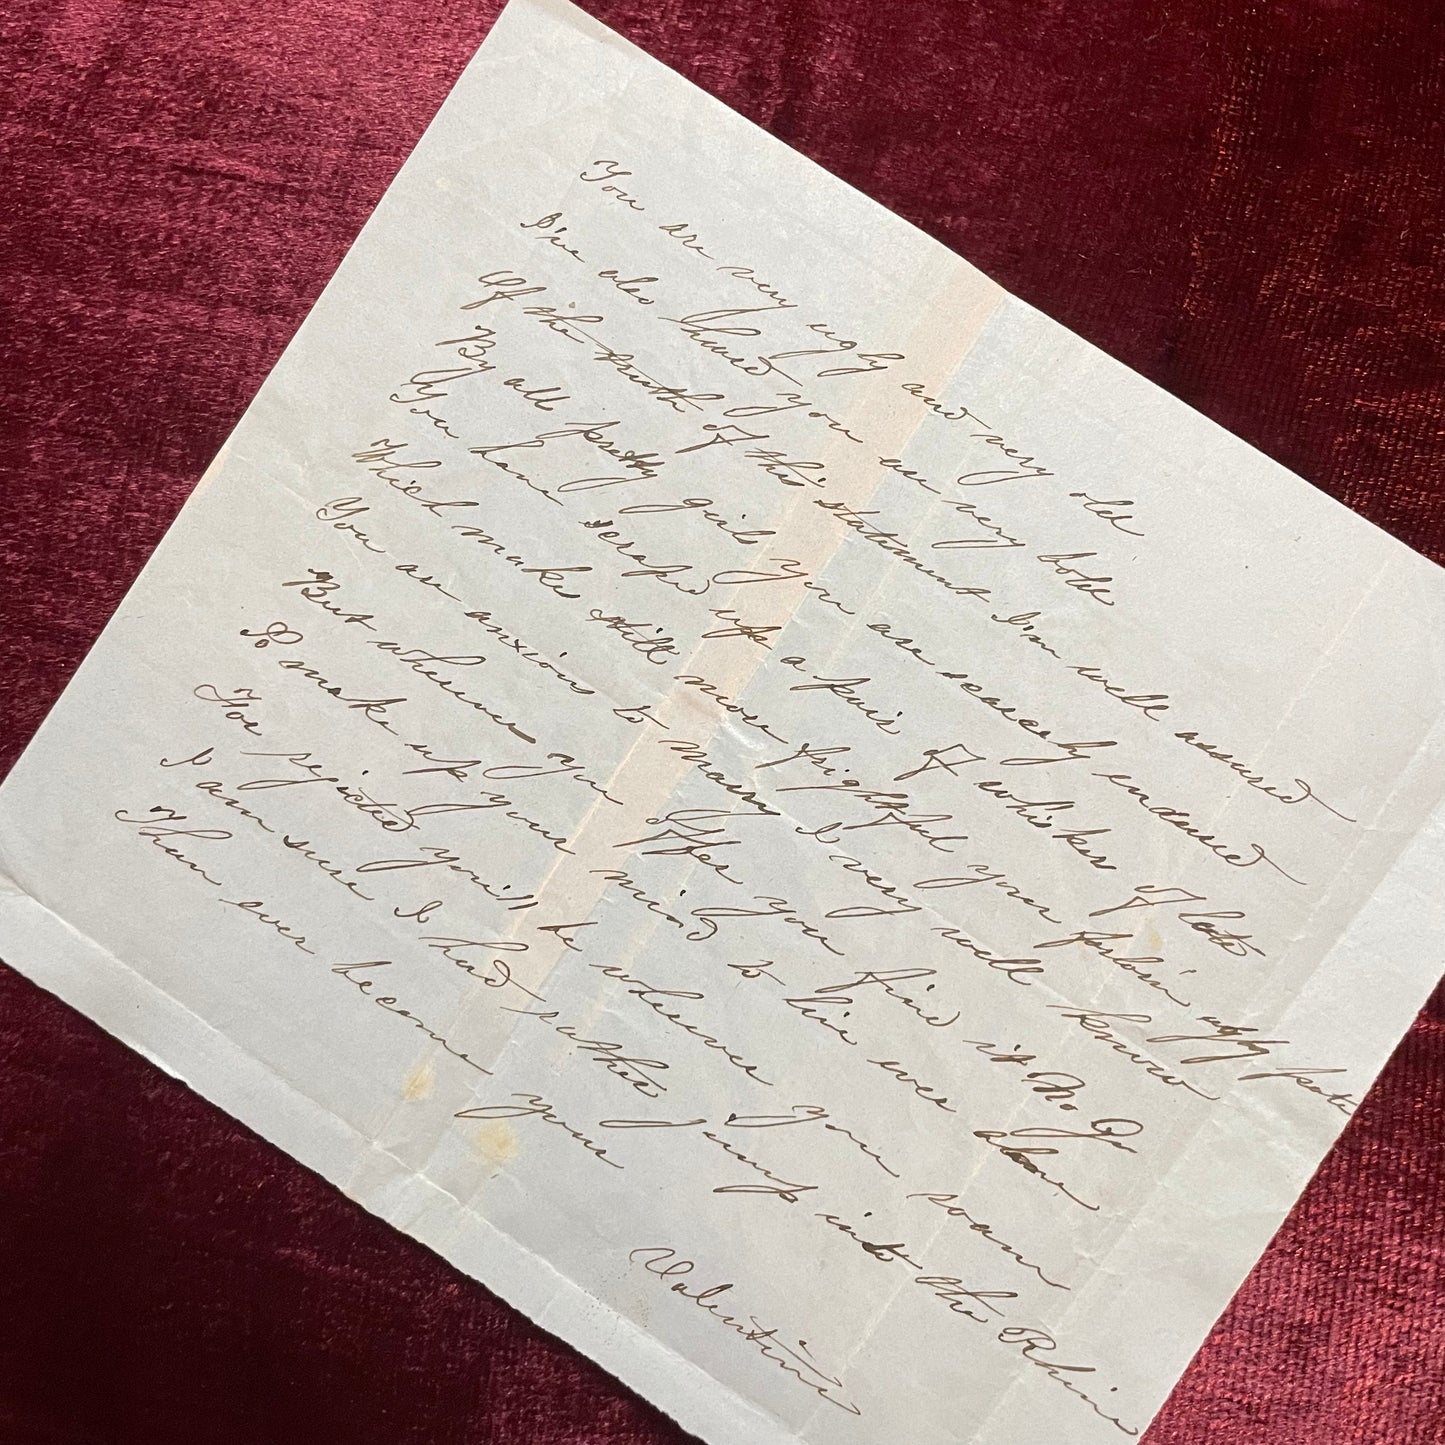 You are very ugly and very old
I've also heard you are very bold
Of the truth of this statement I'm well assured
By all pretty girls you are scarcely endured
You have scraped up a pair of whiskers of late
Which makes still more frightful your ugly pate
You are anxious to marry I very well know
But whenever you offer you find it No Go
So make up your mind to live ever alone
For rejected you'll be wherever you roam
I am sure I had rather jump into the Rhine
Than ever become your
Valentine